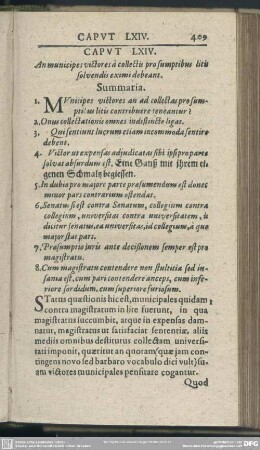 CAPVT LXIV. 409
CAPVT LXIV.
An municipes victores à collectis pro sumptibus litis
solvendis eximi debeant.
Summaria.
1. MVnicipes victores an ad collectas pro sum-
ptibus litis contribuere teneantur?
2. Onus collectationis omnes indistincte ligat.
3. Qui sentiunt lucrum etiam incommoda sentire
debent.
4. Victor ut expensas adjudicatas sibi ipsi pro parte
solvat absurdum est. Eine Ganß mit ihrem ei-
genen Schmaltz begiessen.
5. In dubio pro majore parte præsumendum est donec
minor pars contrarium ostendat.
6. Senatus si est contra Senatum, collegium contra
collegium, universitas contra universitatem, is
dicitur senatus, ea universitas, id collegium, à quo
major stat pars.
7. Præsumptio juris ante decisionem semper est pro
magistratu.
8. Cum magistratu contendere non stultitia sed in-
sania est, cum pari contendere anceps, cum infe-
riore sordidum, cum superiore furiosum.
STatus quæstionis hic est, municipales quidam 1
contra magistratum in lite fuerunt, in qua
magistratus succumbit, atque in expensas dam-
natur, magistratus ut satisfaciat sententiæ, aliis
mediis omnibus destitutus collectam universi-
tati imponit, quæritur an quoram (quæ jam con-
tingens novo sed barbaro vocabulo dici vult) su-
am victores municipales pensitare cogantur.
Quod